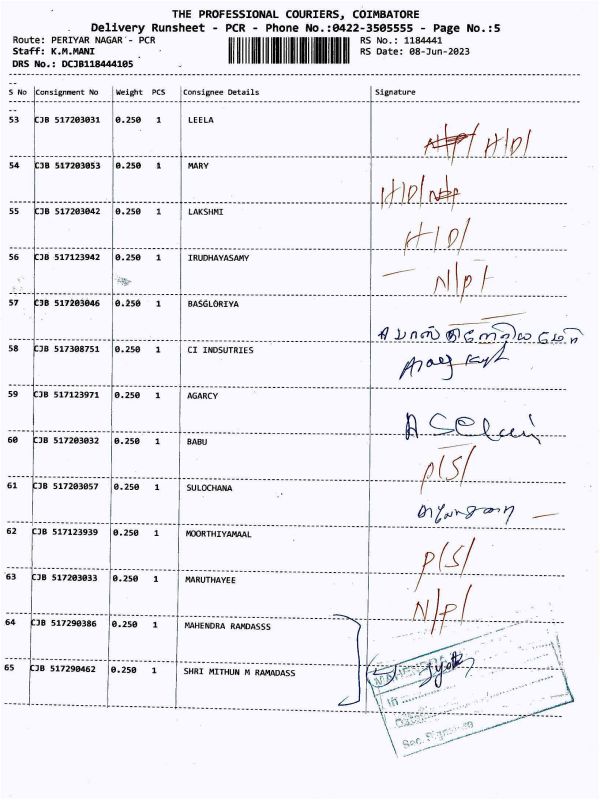 THE PROFESSIONAL COURIERS, COIMBATORE
Delivery Runsheet - PCR - Phone No.:0422-3505555 - Page No.:5
Route: PERIYAR NAGAR - PCR RS No.: 1184441
Staff: K.M.MANI RS Date: 08-Jun-2023
DRS No.: DCJB118444105
S No Consignment No Weight PCS Consignee Details Signature
53 CJB 517203031 0.250 1 LEELA
H/D/
54 CJB 517203053 0.250 1 MARY
H/D/
55 CJB 517203042 0.250 1 LAKSHMI
H/D/
56 CJB 517123942 0.250 1 IRUDHAYASAMY
N/P/
57 CJB 517203046 0.250 1 BASGLORIYA
58 CJB 517308751 0.250 1 CI INDSUTRIES
59 CJB 517123971 0.250 1 AGARCY
A Selvi
60 CJB 517203032 0.250 1 BABU
P/S/
61 CJB 517203057 0.250 1 SULOCHANA
62 CJB 517123939 0.250 1 MOORTHIYAMAAL
P/S/
63 CJB 517203033 0.250 1 MARUTHAYEE
N/P/
64 CJB 517290386 0.250 1 MAHENDRA RAMDASSS
65 CJB 517290462 0.250 1 SHRI MITHUN M RAMADASS
Jyoti